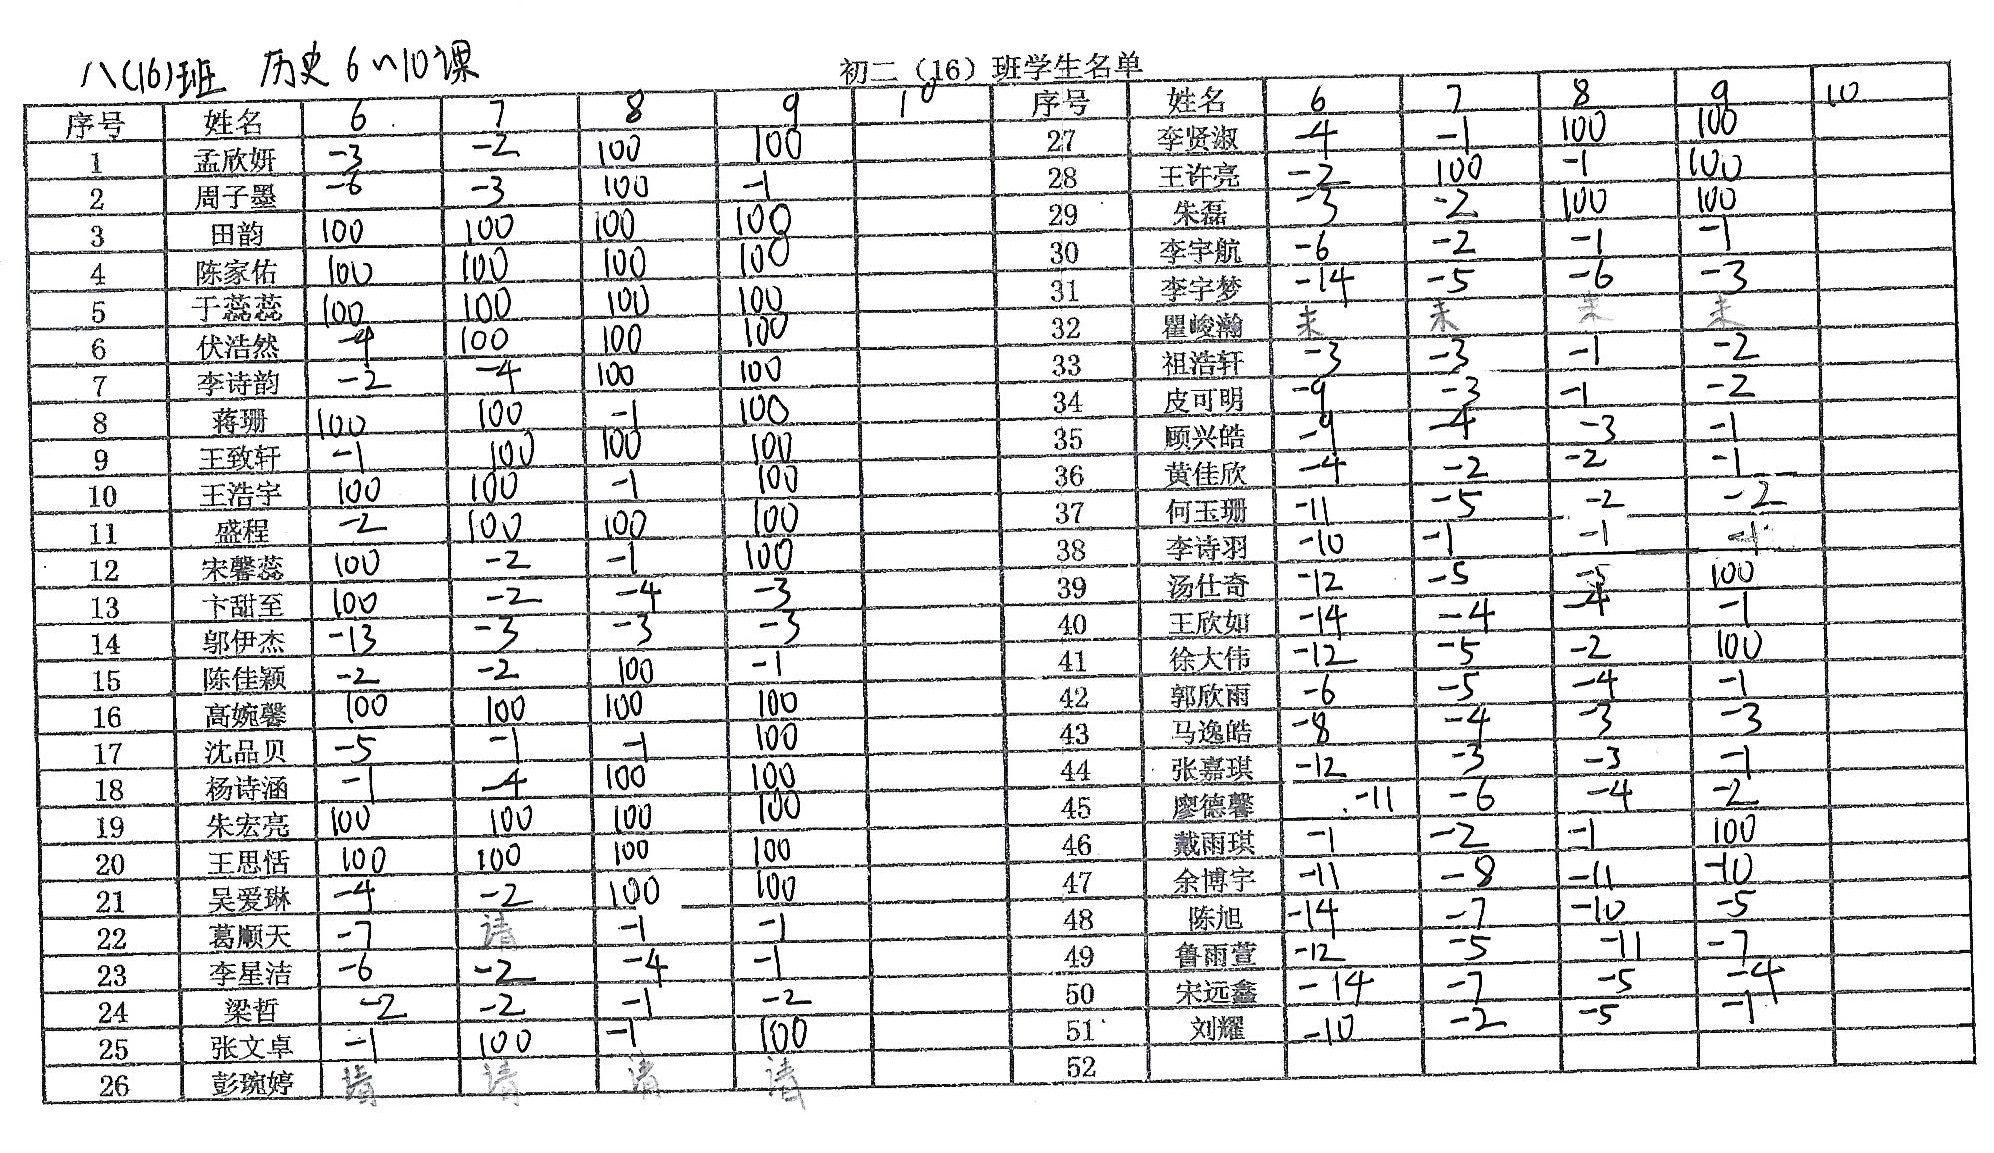 八(16)班 历史6~10课
初二（16）班学生名单
序号 姓名 6 7 8 9 10 序号 姓名 6 7 8 9 10
1 孟欣妍 -3 -2 100 100 27 李贤淑 -4 -1 100 100
2 周子墨 -6 -3 100 -1 28 王许亮 -2 100 -1 100
3 田韵 100 100 100 100 29 朱磊 -3 -2 100 100
4 陈家佑 100 100 100 100 30 李宇航 -6 -2 -1 -1
5 于蕊蕊 100 100 100 100 31 李宇梦 -14 -5 -6 -3
6 伏浩然 -4 100 100 100 32 瞿峻瀚 未 未 未 未
7 李诗韵 -2 -4 100 100 33 祖浩轩 -3 -3 -1 -2
8 蒋珊 100 100 -1 100 34 皮可明 -9 -3 -1 -2
9 王致轩 -1 100 100 100 35 顾兴皓 -9 -4 -3 -1
10 王浩宇 100 100 -1 100 36 黄佳欣 -4 -2 -2 -1
11 盛程 -2 100 100 100 37 何玉珊 -11 -5 -2 -2
12 宋馨蕊 100 -2 -1 100 38 李诗羽 -10 -1 -1 -1
13 卞甜至 100 -2 -4 -3 39 汤仕奇 -12 -5 -5 100
14 邬伊杰 -13 -3 -3 -3 40 王欣如 -14 -4 -4 -1
15 陈佳颖 -2 -2 100 -1 41 徐大伟 -12 -5 -2 100
16 高婉馨 100 100 100 100 42 郭欣雨 -6 -5 -4 -1
17 沈品贝 -5 -1 -1 100 43 马逸皓 -8 -4 -3 -3
18 杨诗涵 -1 -4 100 100 44 张嘉琪 -12 -3 -3 -1
19 朱宏亮 100 100 100 100 45 廖德馨 -11 -6 -4 -2
20 王思恬 100 100 100 100 46 戴雨琪 -1 -2 -1 100
21 吴爱琳 -4 -2 100 100 47 余博宇 -11 -8 -11 -10
22 葛顺天 -7 请 -1 -1 48 陈旭 -14 -7 -10 -5
23 李星洁 -6 -2 -4 -1 49 鲁雨萱 -12 -5 -11 -7
24 梁哲 -2 -2 -1 -2 50 宋远鑫 -14 -7 -5 -4
25 张文卓 -1 100 -1 100 51 刘耀 -10 -2 -5 -1
26 彭琬婷 请 请 请 请 52